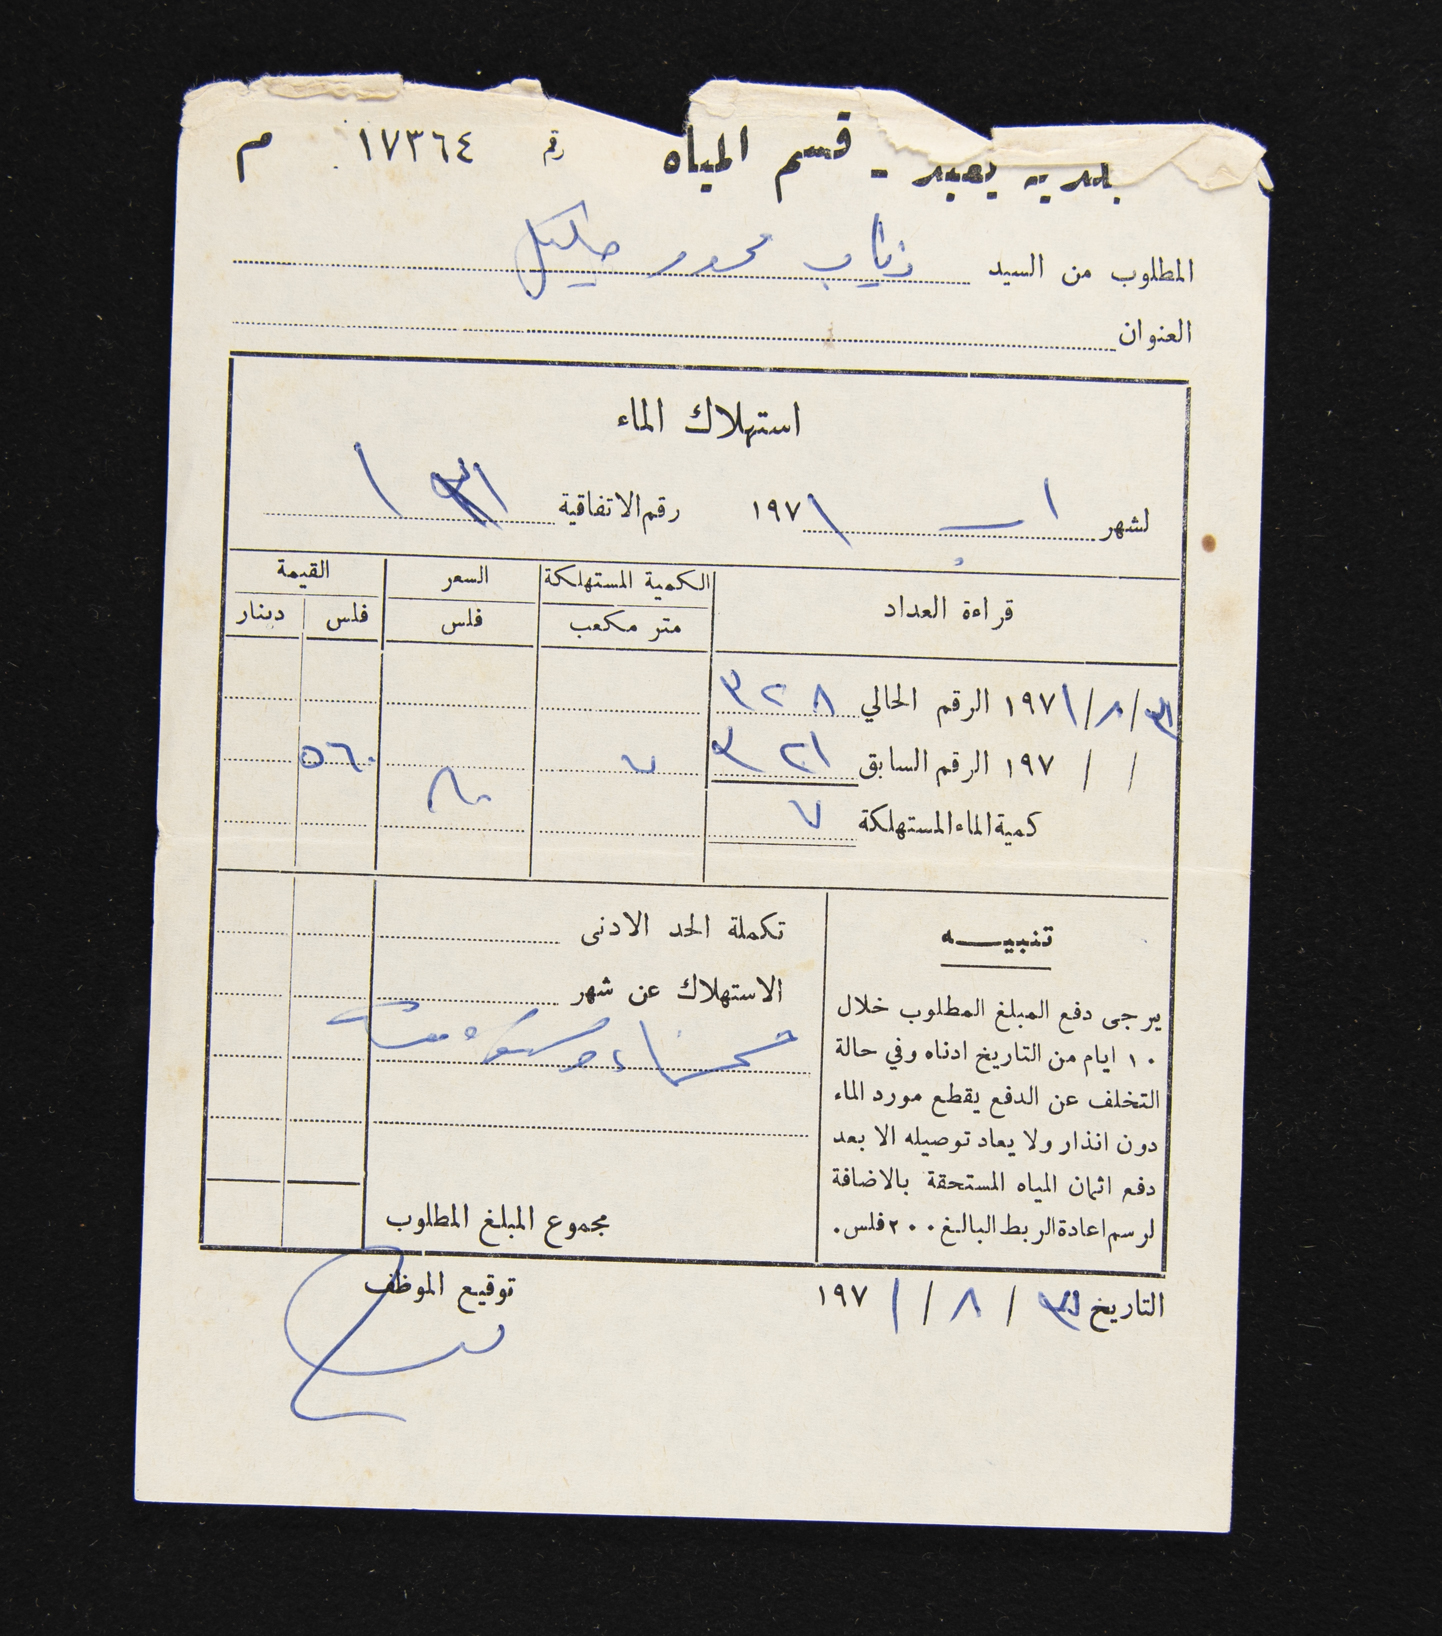 بلديه يعبد - قسم المياه رقم ١٧٣٦٤ م
المطلوب من السيد ذياب محمود
العنوان
استهلاك الماء
لشهر اب ١٩٧١ رقم الاتفاقية
قراءة العداد الكمية المستهلكة السعر القيمة
متر مكعب فلس فلس دينار
٣١/٨/١٩٧١ الرقم الحالي ٣٢٨
/ / ١٩٧ الرقم السابق ٣٢١ ٧ ٨٠ ٥٦٠
كمية الماء المستهلكة ٧
تنبيـــه
يرجى دفع المبلغ المطلوب خلال
١٠ ايام من التاريخ ادناه وفي حالة
التخلف عن الدفع يقطع مورد الماء
دون انذار ولا يعاد توصيله الا بعد
دفع اثمان المياه المستحقة بالاضافة
لرسم اعادة الربط البالغ ٢٠٠ فلس.
تكملة الحد الادنى
الاستهلاك عن شهر
مجموع المبلغ المطلوب
التاريخ ٣١/٨/١٩٧١ توقيع الموظف